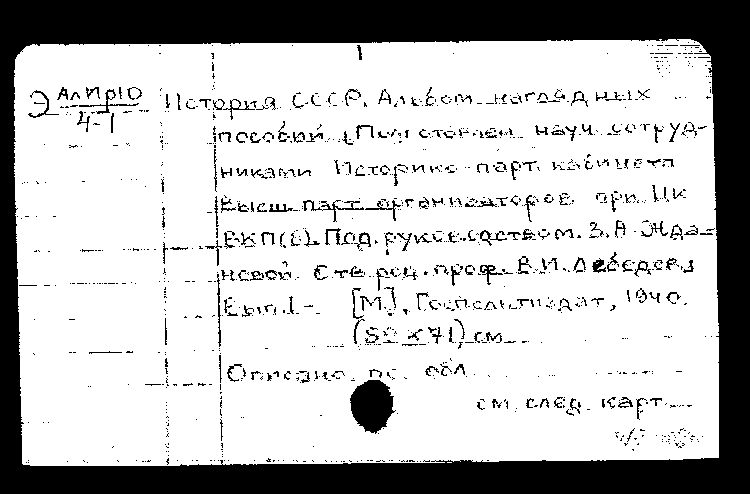 Э АлИр10
4-1
История СССР. Альбом наглядных
пособий. Подготовлен науч. сотруд-
никами Историко-парт. кабинета
Высш. парт. организаторов при ЦК
ВКП(б). Под. руководством З. А. Жда-
новой. Отв. ред. проф. В. И. Лебедев.
Вып. 1- [М], Госполитиздат, 1940.
(52 x 71) см.
Описано по обл.
см. след. карт.